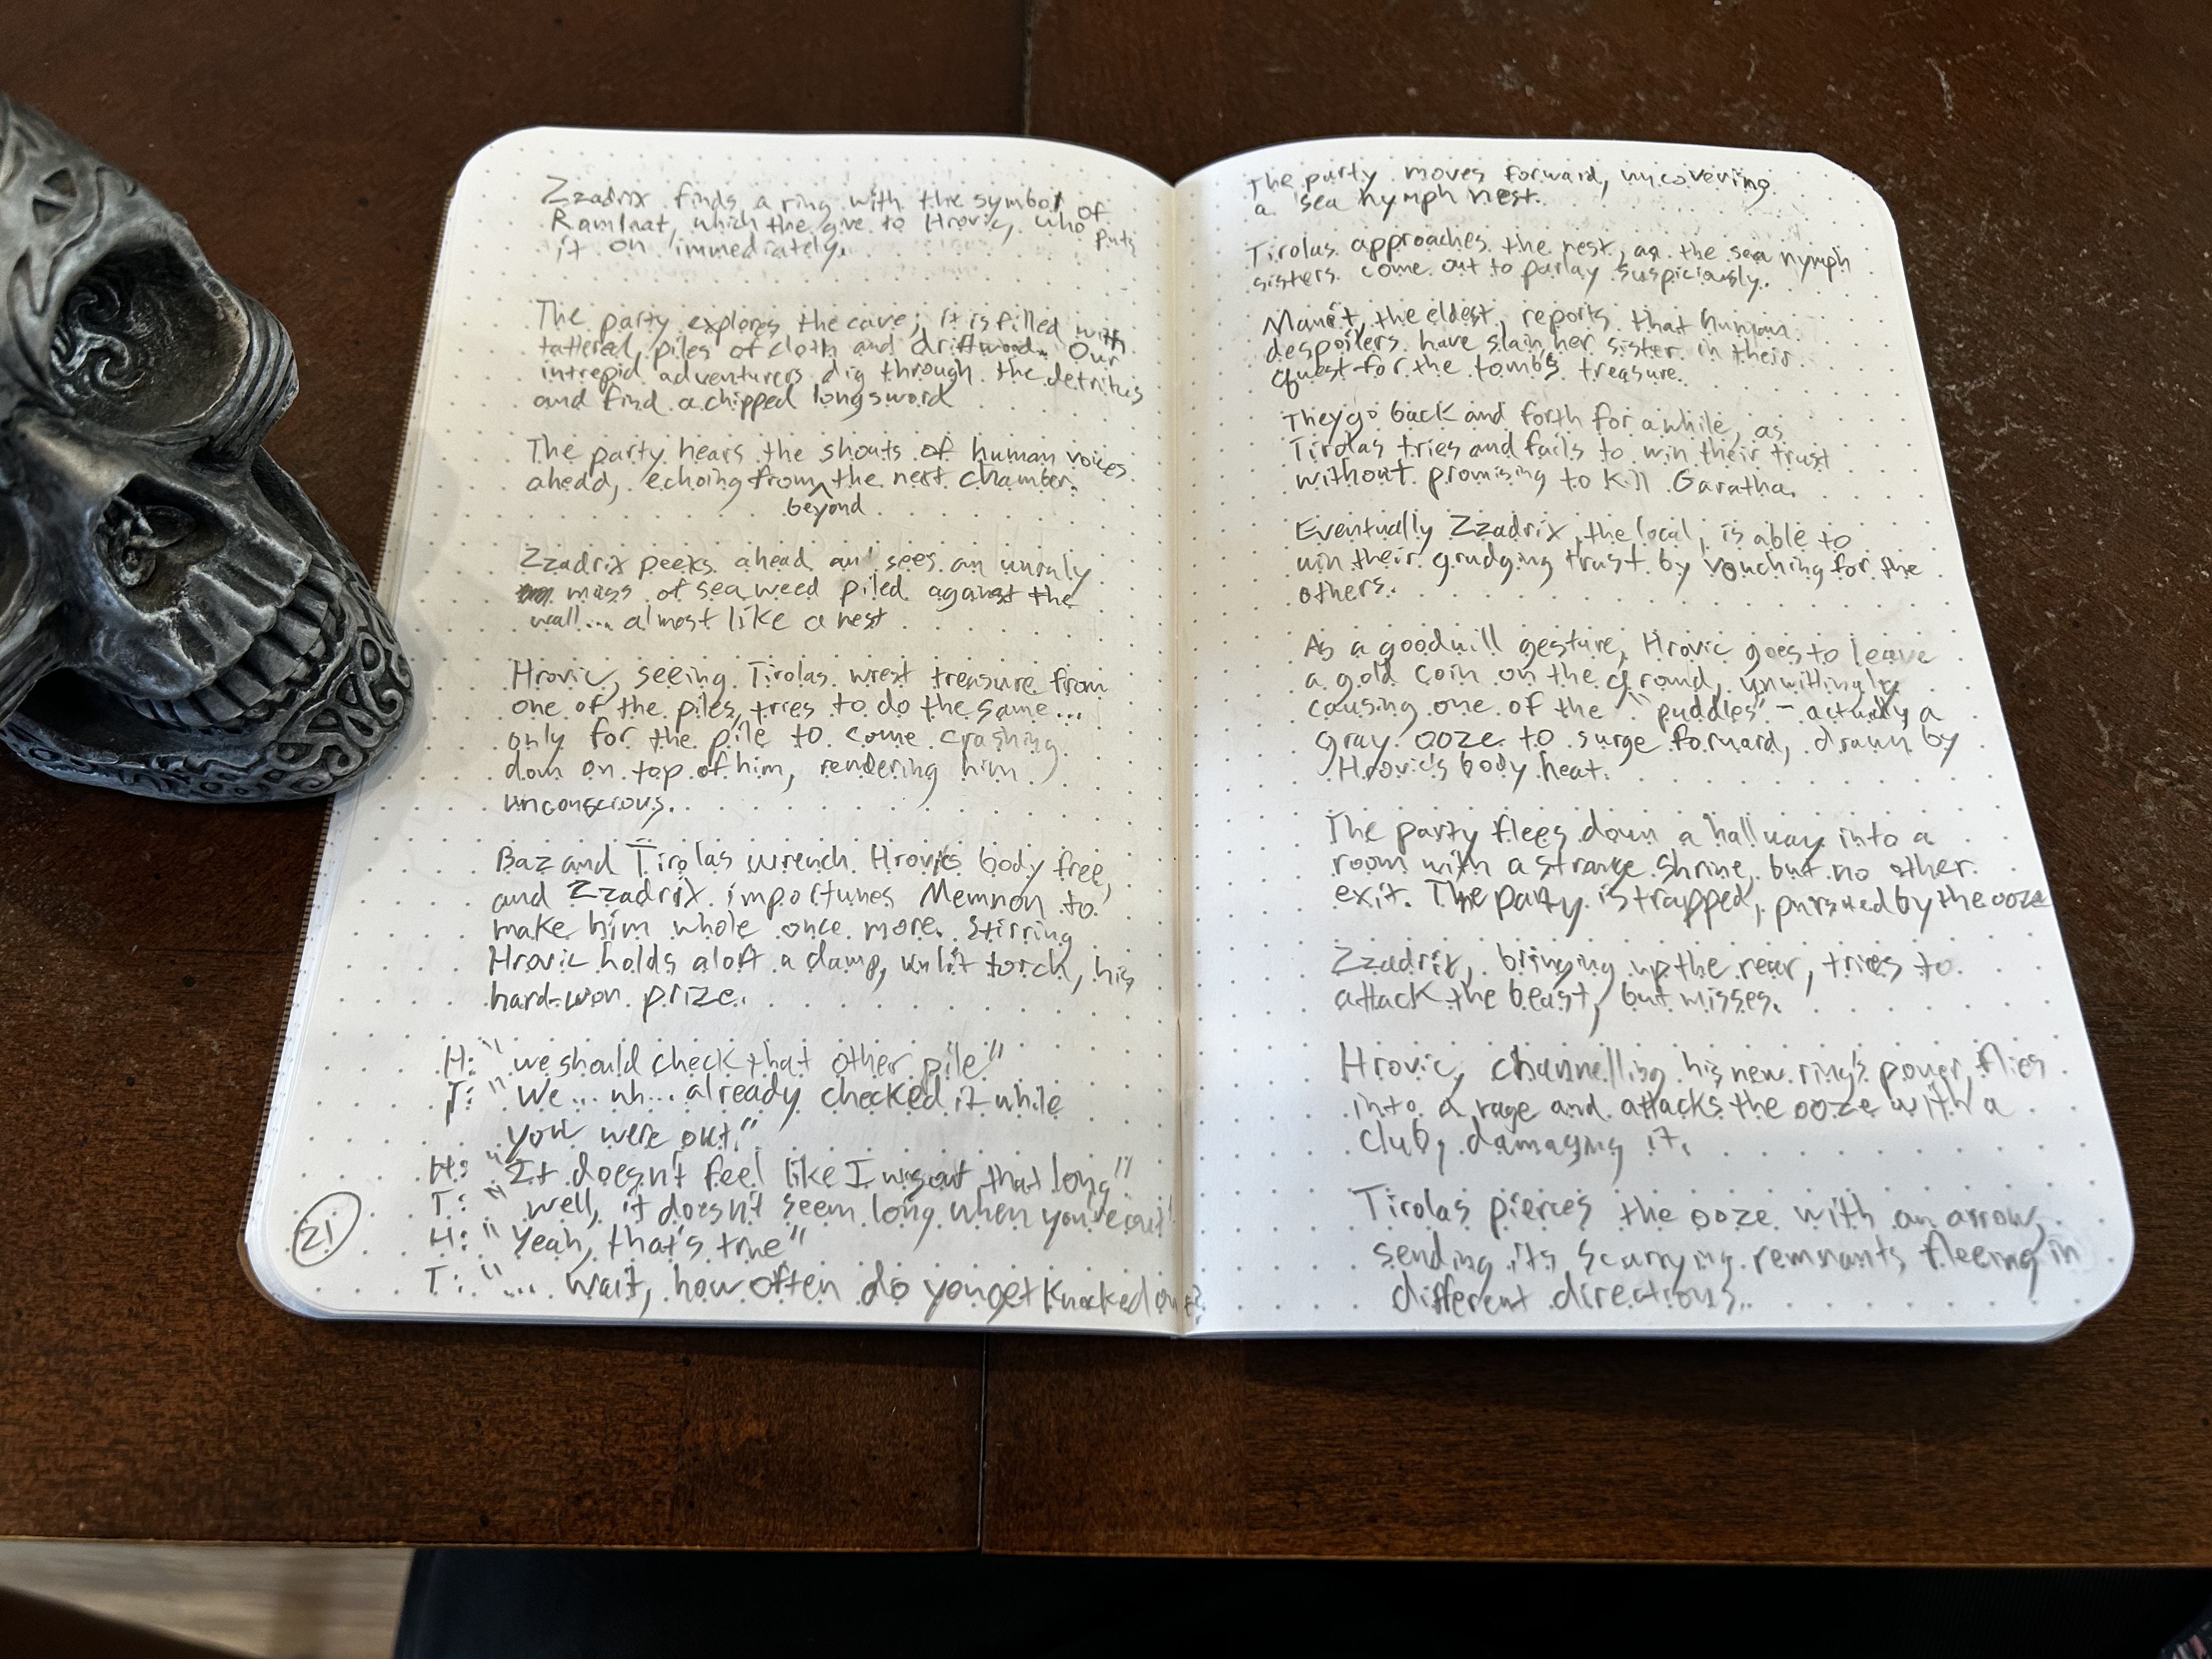 Zzadrix finds a ring with the symbol of
Ramlaat, which the give to Hrovic, who puts
it on immediately.
The party explores the cave; it is filled with
tattered piles of cloth and driftwood. Our
intrepid adventurers dig through the detritus
and find a chipped longsword
The party hears the shouts of human voices
ahead, echoing from ^ the next chamber.
beyond
Zzadrix peeks ahead and sees an unruly
mass of seaweed piled against the
wall... almost like a nest
Hrovic, seeing Tirolas wrest treasure from
one of the piles, tries to do the same...
only for the pile to come crashing
down on top of him, rendering him
unconscious.
Baz and Tirolas wrench Hrovic's body free,
and Zzadrix importunes Memnon to
make him whole once more. Stirring
Hrovic holds aloft a damp, unlit torch, his
hard-won prize.
H: "we should check that other pile"
T: "We... uh... already checked it while
you were out."
H: "It doesn't feel like I was out that long"
T: "well, it doesn't seem long when you're out"
H: "Yeah, that's true"
T: "... wait, how often do you get knocked out?
21
The party moves forward, uncovering
a sea nymph nest.
Tirolas approaches the nest, as the sea nymph
sisters come out to parlay suspiciously.
the eldest, reports that human
despoilers have slain her sister in their
quest for the tomb's treasure.
They go back and forth for awhile, as
Tirolas tries and fails to win their trust
without promising to kill Garatha.
Eventually Zzadrix, the local, is able to
win their grudging trust by vouching for the
others.
As a goodwill gesture, Hrovic goes to leave
a gold coin on the ground, unwittingly
causing one of the "puddles" - actually a
gray ooze to surge forward, drawn by
Hrovic's body heat.
The party flees down a hallway into a
room with a strange shrine, but no other
exit. The party is trapped, pursued by the ooze
Zzadrix, bringing up the rear, tries to
attack the beast, but misses.
Hrovic, channelling his new ring's power, flies
into a rage and attacks the ooze with a
club, damaging it.
Tirolas pierces the ooze with an arrow,
sending its scurrying remnants fleeing in
different directions.